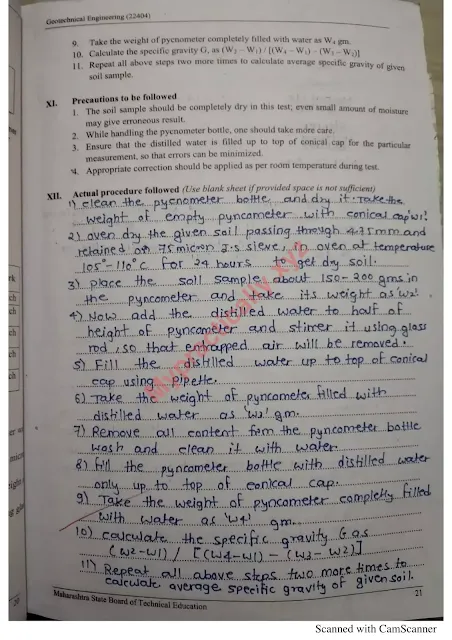 Geotechnical Engineering (22404)
9. Take the weight of pycnometer completely filled with water as W₄ gm.
10. Calculate the specific gravity G, as (W₂ – W₁) / [(W₄ – W₁) – (W₃ – W₂)]
11. Repeat all above steps two more times to calculate average specific gravity of given
soil sample.
XI. Precautions to be followed
1. The soil sample should be completely dry in this test; even small amount of moisture
may give erroneous result.
2. While handling the pycnometer bottle, one should take more care.
3. Ensure that the distilled water is filled up to top of conical cap for the particular
measurement, so that errors can be minimized.
4. Appropriate correction should be applied as per room temperature during test.
XII. Actual procedure followed (Use blank sheet if provided space is not sufficient)
1) clean the pycnometer bottle, and dry it. Take the
weight of empty pyncometer with conical cap 'w1'
2) oven dry the given soil passing through 4.75mm and
retained on 75 micron I.S sieve, in oven at temperature
105°-110°C for 24 hours to get dry soil.
3) place the soil sample about 150-200 gms in
the pyncometer and take its weight as 'w2'
4) Now add the distilled water to half of
height of pyncometer and stirrer it using glass
rod, so that entrapped air will be removed.
5) Fill the distilled water up to top of conical
cap using pipette.
6) Take the weight of pyncometer filled with
distilled water as 'w3' gm.
7) Remove all content from the pyncometer bottle
wash and clean it with water.
8) fill the pyncometer bottle with distilled water
only up to top of conical cap.
9) Take the weight of pyncometer completly filled
with water as 'w4' gm.
10) calculate the specific gravity G as
(w2-w1) / [(w4-w1) - (w3-w2)]
11) Repeat all above steps two more times to
calculate average specific gravity of given soil.
Maharashtra State Board of Technical Education
21
Scanned with CamScanner